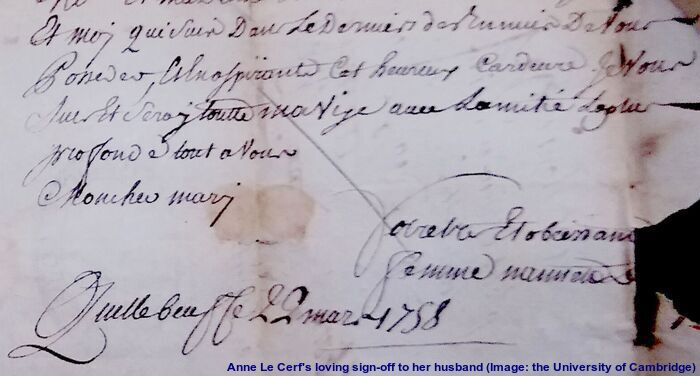 Et moy qui suis Dans Le Dernier des Ennuier De vous
Posseder, Et En aspirante Cet heureux Cardeure Je vous
suis Et seray toutte ma vije avec Lamitié Laplus
profond é tout a vous
Moncher marj
votre tre Et obeissante
femme nannette
Quillebeuf Ce 22 mars 1758
Anne Le Cerf's loving sign-off to her husband (Image: the University of Cambridge)